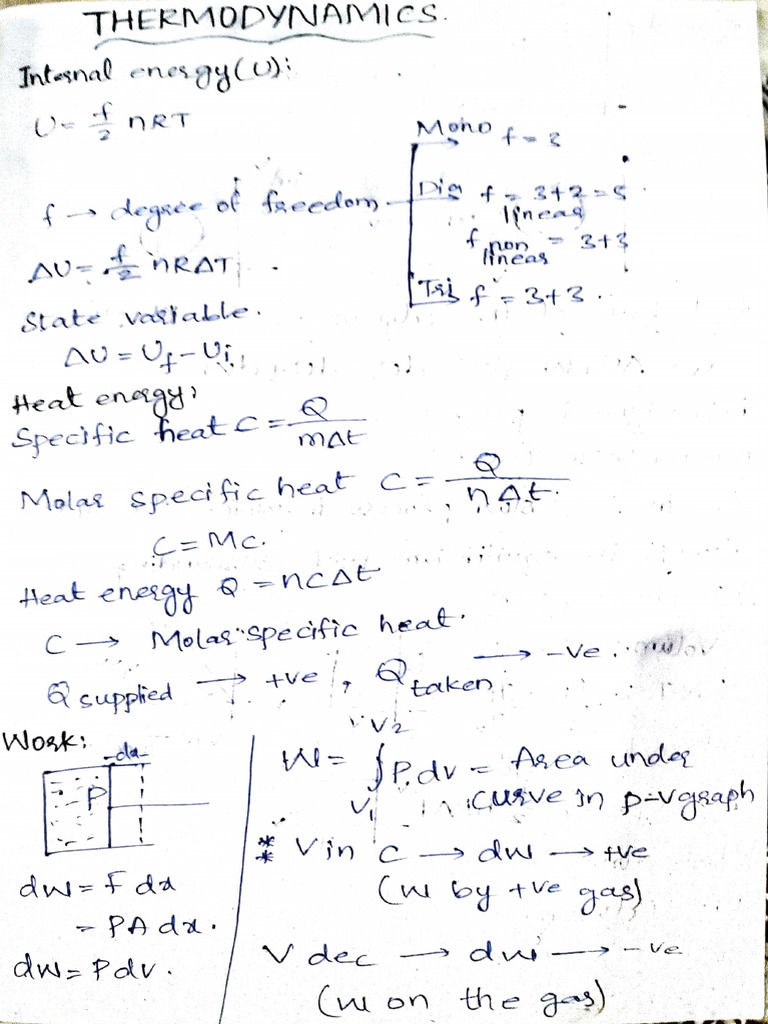 THERMODYNAMICS.
Internal energy (U):
U = f/2 nRT
Mono f = 3
f → degree of freedom
Dia f = 3+2=5
linear
f non linear = 3+3
ΔU = f/2 nRΔT
Tri f = 3+3.
State variable.
ΔU = Uf - Ui
Heat energy:
Specific heat C = Q/mΔt
Molar specific heat C = Q/nΔt.
C = MC.
Heat energy Q = nCΔt
C → Molar specific heat.
Q supplied → +ve, Q taken → -ve.
Work:
dx
P
dw = F dx
= PA dx.
dw = Pdv.
W = ∫ V1 V2 P.dv = Area under
curve in p-v graph
** V in c → dw → +ve
(w by +ve gas)
V dec → dw → -ve
(w on the gas)